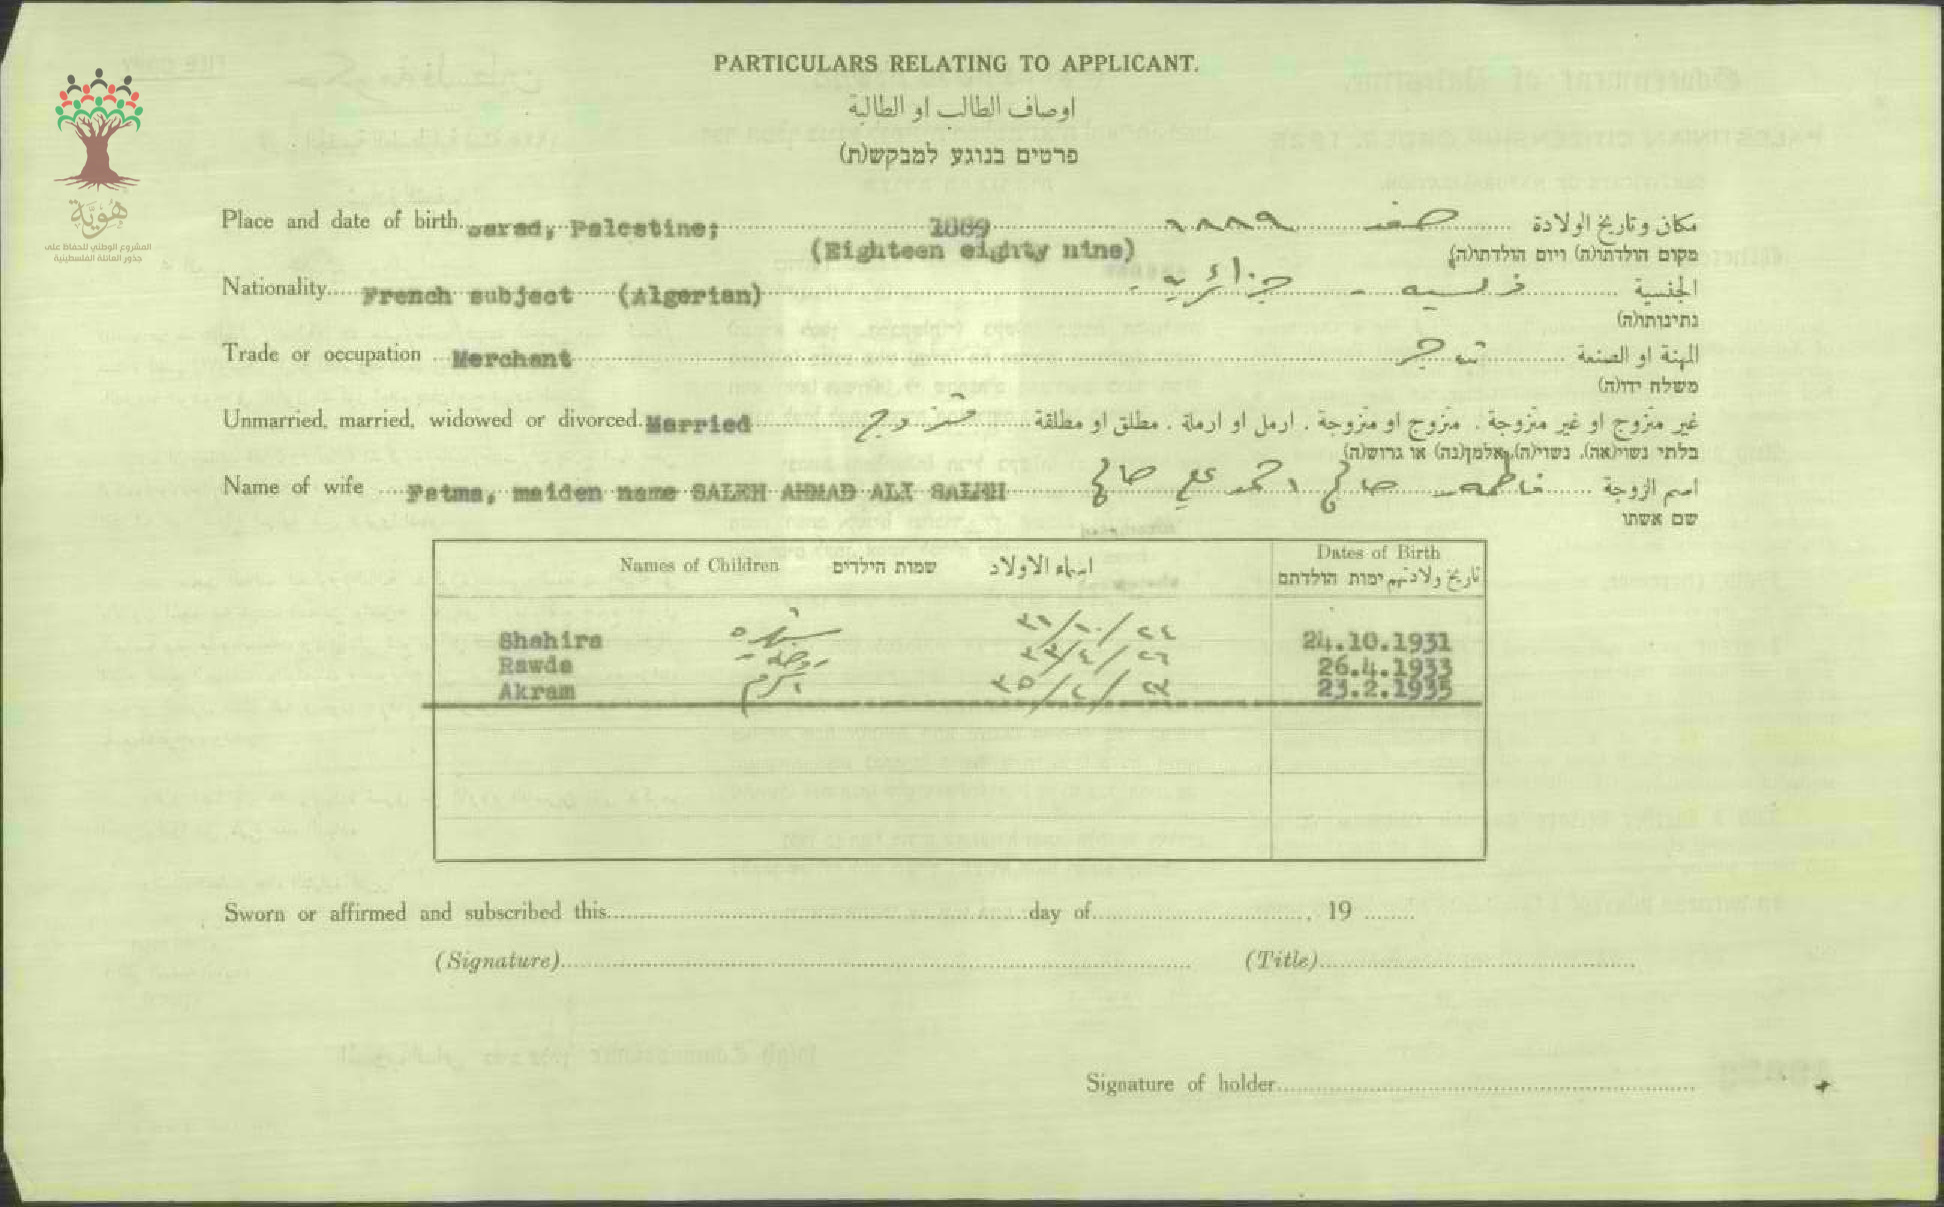 PARTICULARS RELATING TO APPLICANT.
اوصاف الطالب او الطالبة
פרטים בנוגע למבקש(ת)
هُوِيَّة
المشروع الوطني للحفاظ على
جذور العائلة الفلسطينية
Place and date of birth. Palestine; 1889 ١٨٨٩ صفد مكان وتاريخ الولادة
(Eighteen eighty nine) מקום הולדתו(ה) ויום הולדתו(ה)
Nationality French subject (Algerian) جزائريه - الجنسية
נתינותו(ה)
Trade or occupation Merchant تاجر المهنة او الصنعة
משלח ידו(ה)
Unmarried, married, widowed or divorced. Married متزوج غير متزوج او غير متزوجة . متزوج او متزوجة . ارمل او ارملة . مطلق او مطلقة
בלתי נשוי(אה), נשוי(ה), אלמן(נה) או גרוש(ה)
Name of wife Fatma, maiden name SALEH AHMAD ALI SALEH فاطمه صالح احمد علي صالح اسم الزوجة
שם אשתו
Names of Children שמות הילדים اسماء الاولاد Dates of Birth
تاريخ ولادتهم ימות הולדתם
Shahira شهيره ٢٤/١٠/٣١ 24.10.1931
Rawda روضه ٢٦/٤/٣٣ 26.4.1933
Akram اكرم ٢٣/٢/٣٥ 23.2.1935
Sworn or affirmed and subscribed this day of , 19
(Signature) (Title)
Signature of holder